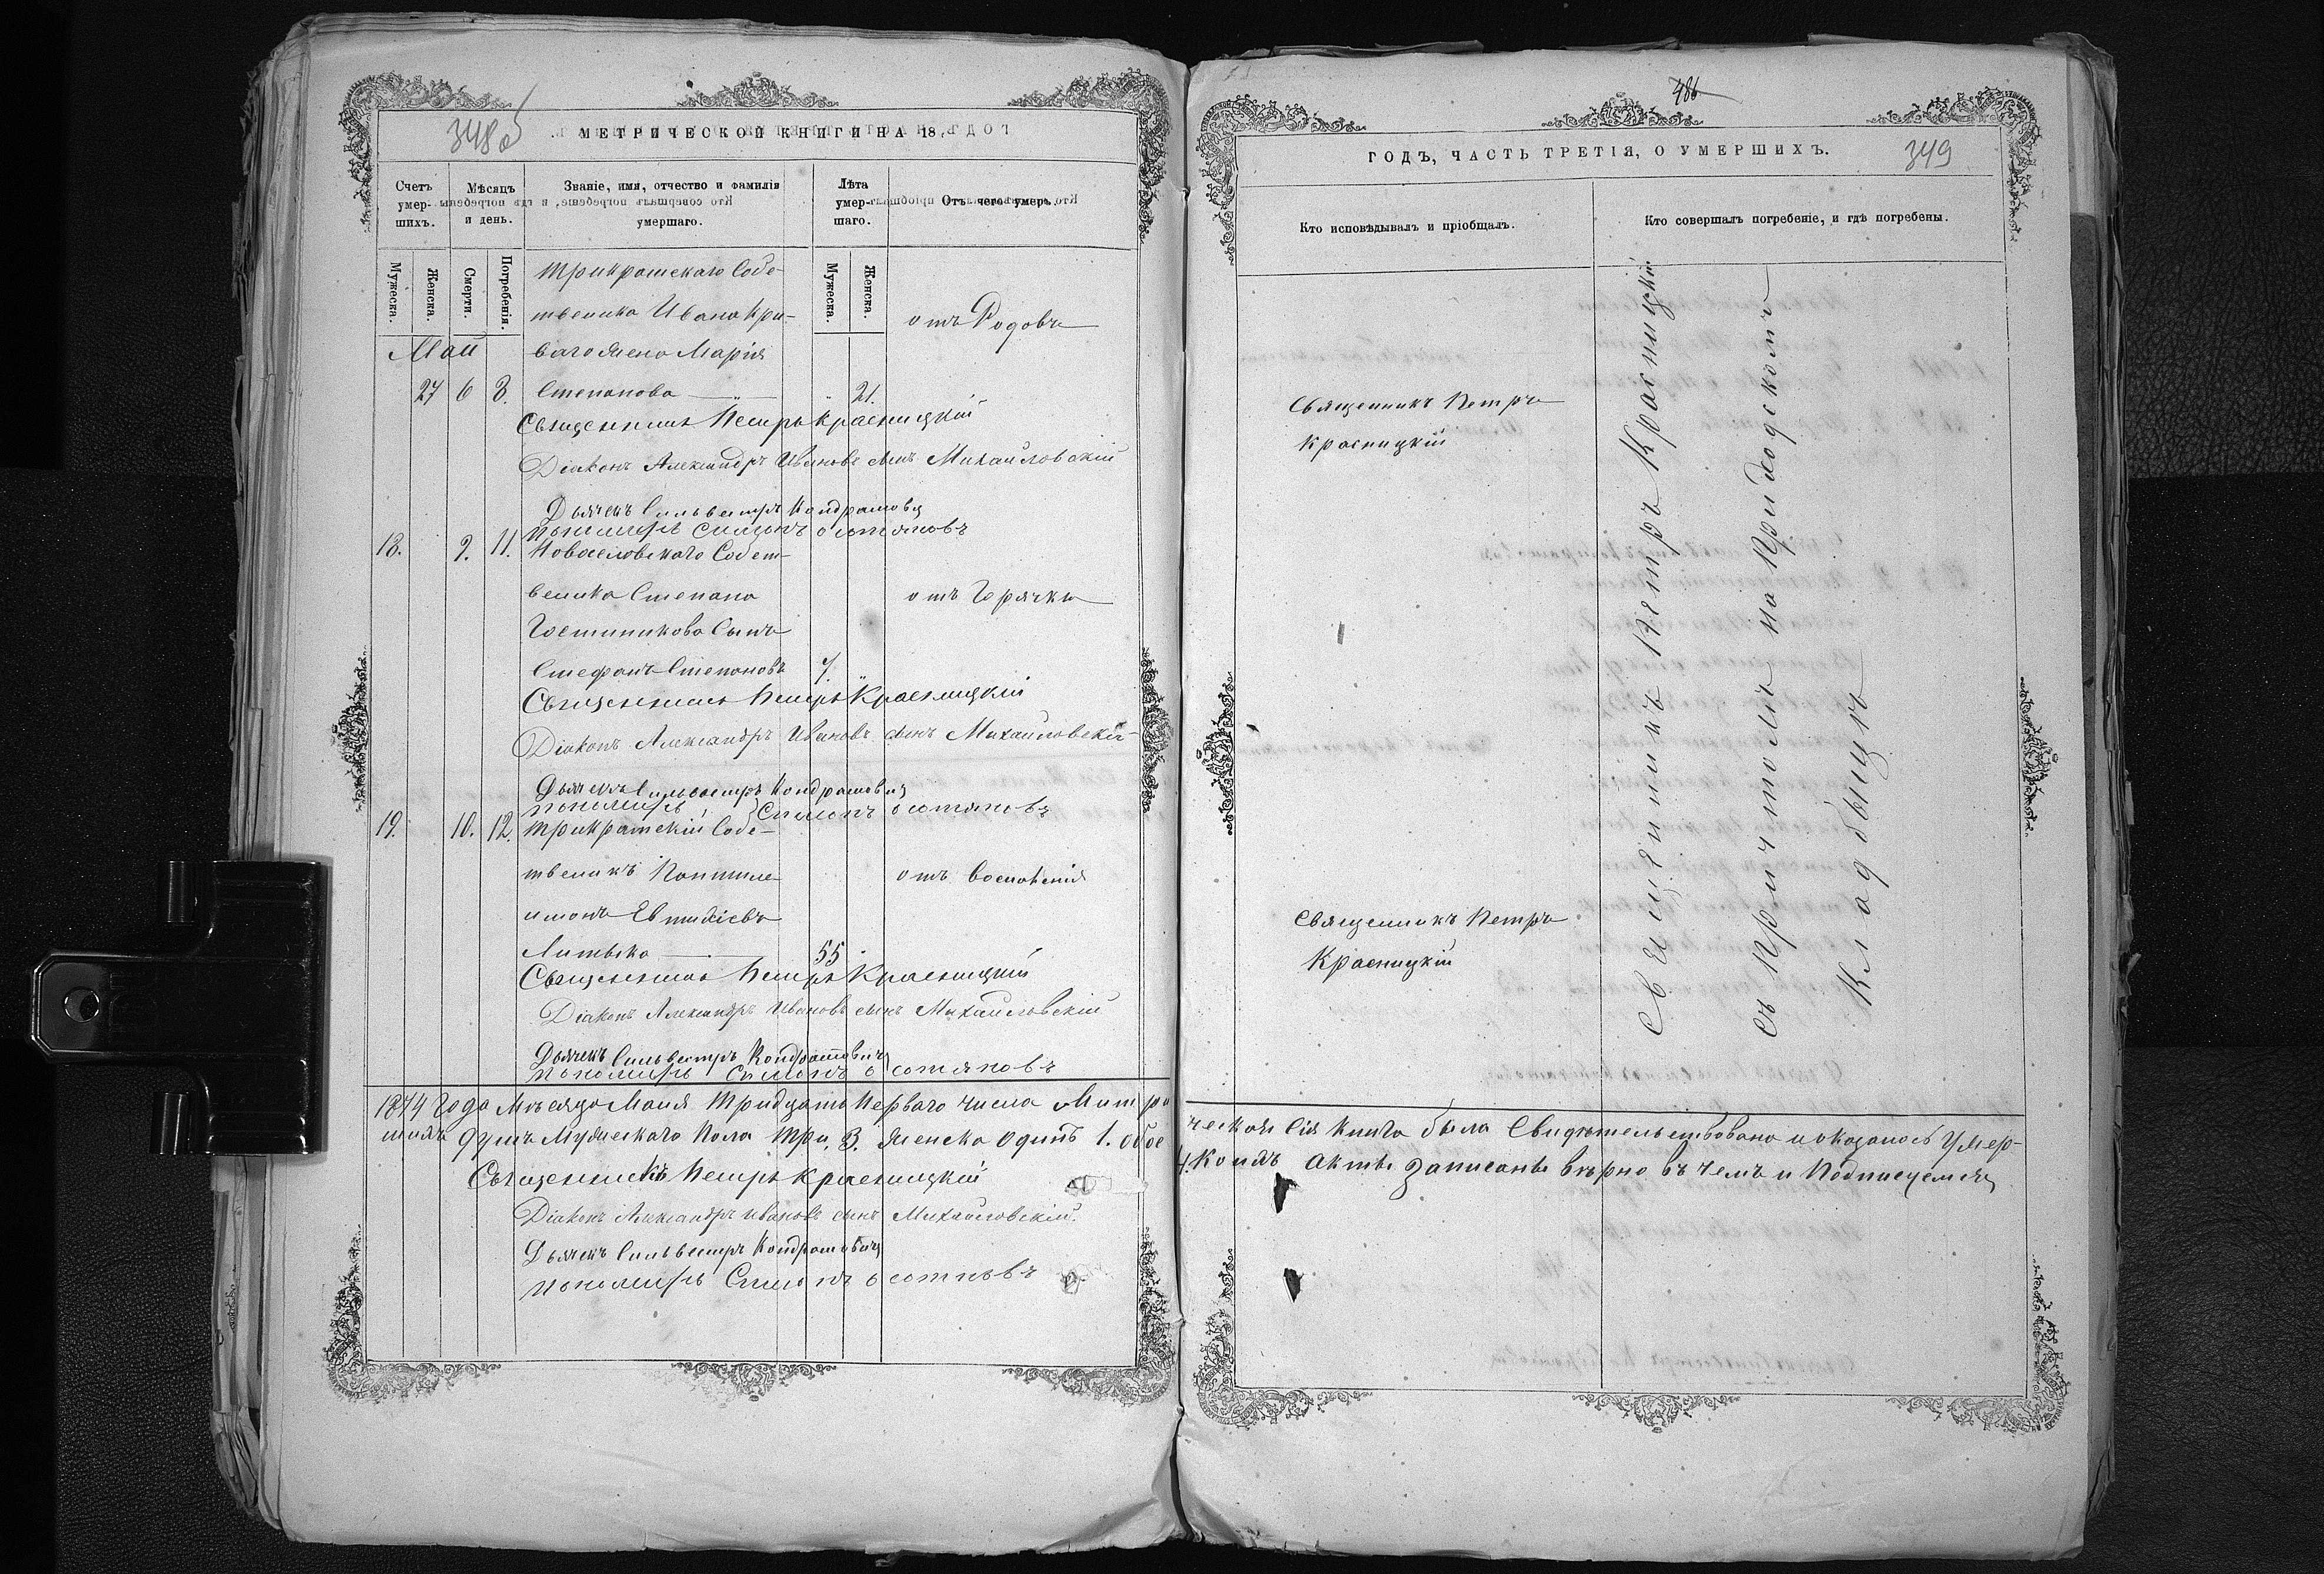 348 об
МЕТРИЧЕСКОЙ КНИГИ НА 18
Счетъ умер- шихъ.
Мѣсяцъ и день.
Званіе, имя, отчество и фамилія умершаго.
Лѣта умер- шаго.
Отъ чего умеръ.
Мужеска.
Женска.
Смерти.
Погребенія.
Мужеска.
Женска.
Трикратскаго Собс-
твеника Ивана Кри-
отъ Родовъ
Май
ваго жена Марія
27 6 8. Степанова 21.
Священникъ Петръ Красницкій
Діаконъ Александръ Ивановъ сынъ Михайловскій
Дьячекъ Сильвестръ Кондратовичъ
пономарь Симонъ Осотяновъ
18. 9. 11. Новоселовскаго Собст-
веника Степана
отъ Горячки
Гостиникова Сынъ
Стефанъ Степановъ 7.
Священникъ Петръ Красницкій
Діаконъ Александръ Ивановъ сынъ Михайловскій
Дьячекъ Сильвестръ Кондратовичъ
пономарь Симонъ Осотяновъ
19. 10. 12. Трикратскій Собс-
твеникъ Пантиле-
отъ воспаленія
имонъ Евтихіевъ
Литвека 55
Священникъ Петръ Красницкій
Діаконъ Александръ Ивановъ сынъ Михайловскій
Дьячекъ Сильвестръ Кондратовичъ
пономарь Симонъ Осотяновъ
1874 Года Мѣсяца Маія Тридцать Перваго числа Митри
шихъ душъ Мужескаго Пола Три, 3. женска Одинъ 1. обое
Священникъ Петръ Красницкій
Діаконъ Александръ Ивановъ сынъ Михайловскій.
Дьячекъ Сильвестръ Кондратовичъ
пономарь Симонъ Осотяновъ
486
ГОДЪ, ЧАСТЬ ТРЕТІЯ, О УМЕРШИХЪ.
349
Кто исповѣдывалъ и пріобщалъ.
Кто совершалъ погребеніе, и гдѣ погребены.
Священникъ Петръ
Красницкій
Священникъ Петръ
Красницкій
Священникъ Петръ Красницкій
съ Причтомъ на Приходскомъ
Кладбищѣ
ческая Сія Книга была Свидѣтельствована и оказалось Умер-
4. Коихъ Акты Записаны вѣрно въ чемъ и Подписуемся